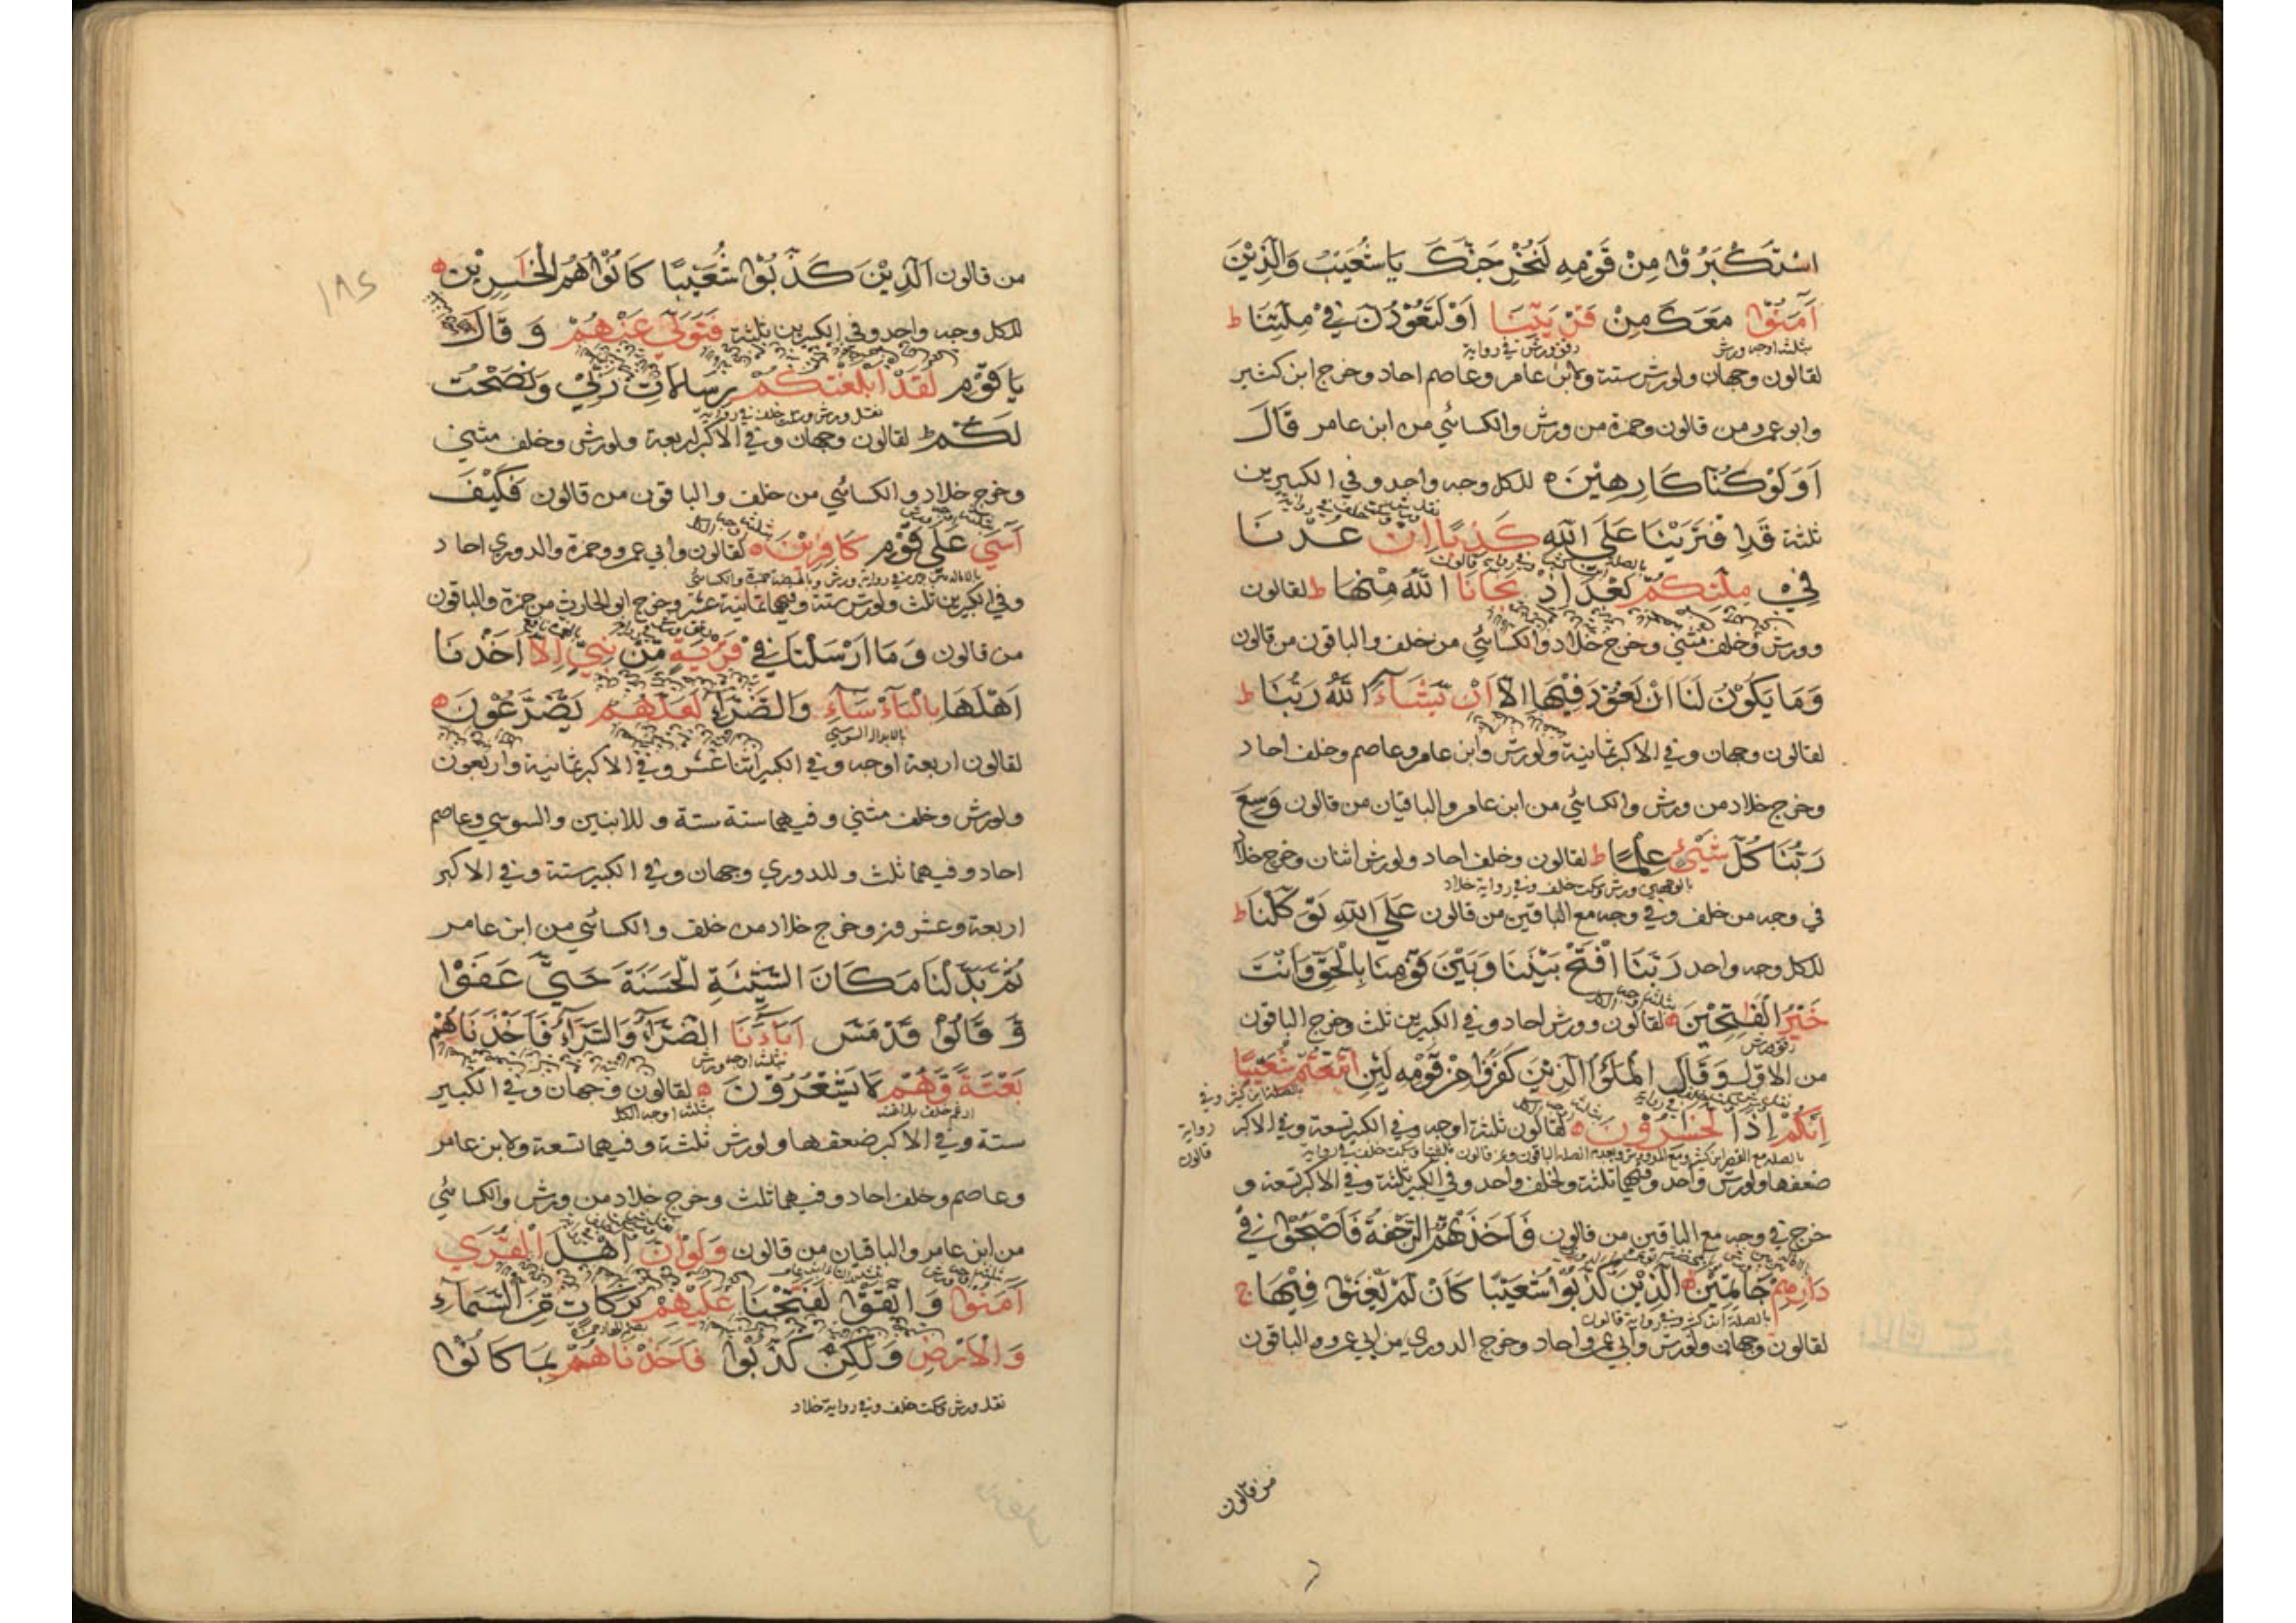 اسْتَكْبَرُوا مِنْ قَوْمِهِ لَنُخْرِجَنَّكَ يَا شُعَيْبُ وَالَّذِيْنَ
آمَنُوْا مَعَكَ مِنْ قَرْيَتِنَا اَوْ لَتَعُوْدُنَّ فِيْ مِلَّتِنَا ط
بثلثة اوجه ورش رقق ورش في رواية
لقالون وجهان ولورش ستة ولابن عامر وعاصم احاد وخرج ابن كثير
وابو عمرو من قالون وحمزة من ورش والكسائي من ابن عامر قَالَ
اَوَلَوْ كُنَّا كَارِهِيْنَ ه للكل وجه واحد وفي الكبيرين
ثلثة قَدِ افْتَرَيْنَا عَلَى اللّٰهِ كَذِبًا اِنْ عُدْنَا
فِيْ مِلَّتِكُمْ بَعْدَ اِذْ نَجَانَا اللّٰهُ مِنْهَا ط لقالون
وورش وخلف مثنى وخرج خلاد والكسائي من خلف والباقون من قالون
وَمَا يَكُوْنُ لَنَا اَنْ نَعُوْدَ فِيْهَا اِلَّا اَنْ يَّشَاءَ اللّٰهُ رَبُّنَا ط
لقالون وجهان وفي الاكبر ثمانية ولورش وابن عامر وعاصم وخلف احاد
وخرج خلاد من ورش والكسائي من ابن عامر والباقيان من قالون وَسِعَ
رَبُّنَا كُلَّ شَيْءٍ عِلْمًا ط لقالون وخلف احاد ولورش اثنان وخرج خلاد
بالوجهين ورش وسكت خلف وفي رواية خلاد
في وجه من خلف وفي وجه مع الباقين من قالون عَلَى اللّٰهِ تَوَكَّلْنَا ط
للكل وجه واحد رَبَّنَا افْتَحْ بَيْنَنَا وَبَيْنَ قَوْمِنَا بِالْحَقِّ وَاَنْتَ
بثلثة اوجه الكل
خَيْرُ الْفٰتِحِيْنَ ه لقالون وورش احاد وفي الكبيرين ثلث وخرج الباقون
رقق ورش
من الاول وَقَالَ الْمَلَؤُا الَّذِيْنَ كَفَرُوْا مِنْ قَوْمِهِ لَئِنِ اتَّبَعْتُمْ شُعَيْبًا
اِنَّكُمْ اِذًا لَخٰسِرُوْنَ ه لقالون ثلثة اوجه وفي الكبير تسعة وفي الاكبر
ضعفها ولورش واحد وفيهما ثلثة ولخلف واحد وفي الكبير ثلثة وفي الاكبر تسعة و
خرج في وجه مع الباقين من قالون فَاَخَذَتْهُمُ الرَّجْفَةُ فَاَصْبَحُوْا فِيْ
دَارِهِمْ جَاثِمِيْنَ ه الَّذِيْنَ كَذَّبُوْا شُعَيْبًا كَاَنْ لَّمْ يَغْنَوْا فِيْهَا ج
بالصلة ابن كثير وفي رواية قالون
لقالون وجهان ولورش وابي عمرو احاد وخرج الدوري من ابي عمرو والباقون
من قالون
١٨٢
من قالون اَلَّذِيْنَ كَذَّبُوْا شُعَيْبًا كَانُوْا هُمُ الْخٰسِرِيْنَ ه
للكل وجه واحد وفي الكبيرين ثلثة فَتَوَلّٰى عَنْهُمْ وَقَالَ
يَا قَوْمِ لَقَدْ اَبْلَغْتُكُمْ رِسَالَاتِ رَبِّيْ وَنَصَحْتُ
لَكُمْ ط لقالون وجهان وفي الاكبر اربعة ولورش وخلف مثنى
وخرج خلاد والكسائي من خلف والباقون من قالون فَكَيْفَ
آسٰى عَلٰى قَوْمٍ كَافِرِيْنَ ه لقالون وابي عمرو وحمزة والدوري احاد
وفي الكبيرين ثلث ولورش ستة وفيهما ثمانية عشر وخرج ابو الحارث من حمزة والباقون
من قالون وَمَا اَرْسَلْنَا فِيْ قَرْيَةٍ مِّنْ نَّبِيٍّ اِلَّا اَخَذْنَا
اَهْلَهَا بِالْبَأْسَاءِ وَالضَّرَّاءِ لَعَلَّهُمْ يَضَّرَّعُوْنَ ه
بالابدال السوسي
لقالون اربعة اوجه وفي الكبير اثنا عشر وفي الاكبر ثمانية واربعون
ولورش وخلف مثنى وفيهما ستة ستة وللابنين والسوسي وعاصم
احاد وفيهما ثلث وللدوري وجهان وفي الكبير ستة وفي الاكبر
اربعة وعشرون وخرج خلاد من خلف والكسائي من ابن عامر
ثُمَّ بَدَّلْنَا مَكَانَ السَّيِّئَةِ الْحَسَنَةَ حَتّٰى عَفَوْا
وَّقَالُوْا قَدْ مَسَّ اٰبَاءَنَا الضَّرَّاءُ وَالسَّرَّاءُ فَاَخَذْنَاهُمْ
بثلثة اوجه ورش
بَغْتَةً وَّهُمْ لَا يَشْعُرُوْنَ ه لقالون وجهان وفي الكبير
ادغم خلف بلا غنة بثلثة اوجه الكل
ستة وفي الاكبر ضعفها ولورش ثلثة وفيهما تسعة ولابن عامر
وعاصم وخلف احاد وفيهما ثلث وخرج خلاد من ورش والكسائي
من ابن عامر والباقيان من قالون وَلَوْ اَنَّ اَهْلَ الْقُرٰى
اٰمَنُوْا وَاتَّقَوْا لَفَتَحْنَا عَلَيْهِمْ بَرَكَاتٍ مِّنَ السَّمَاءِ
وَالْاَرْضِ وَلٰكِنْ كَذَّبُوْا فَاَخَذْنَاهُمْ بِمَا كَانُوْا
نقل ورش وسكت خلف وفي رواية خلاد